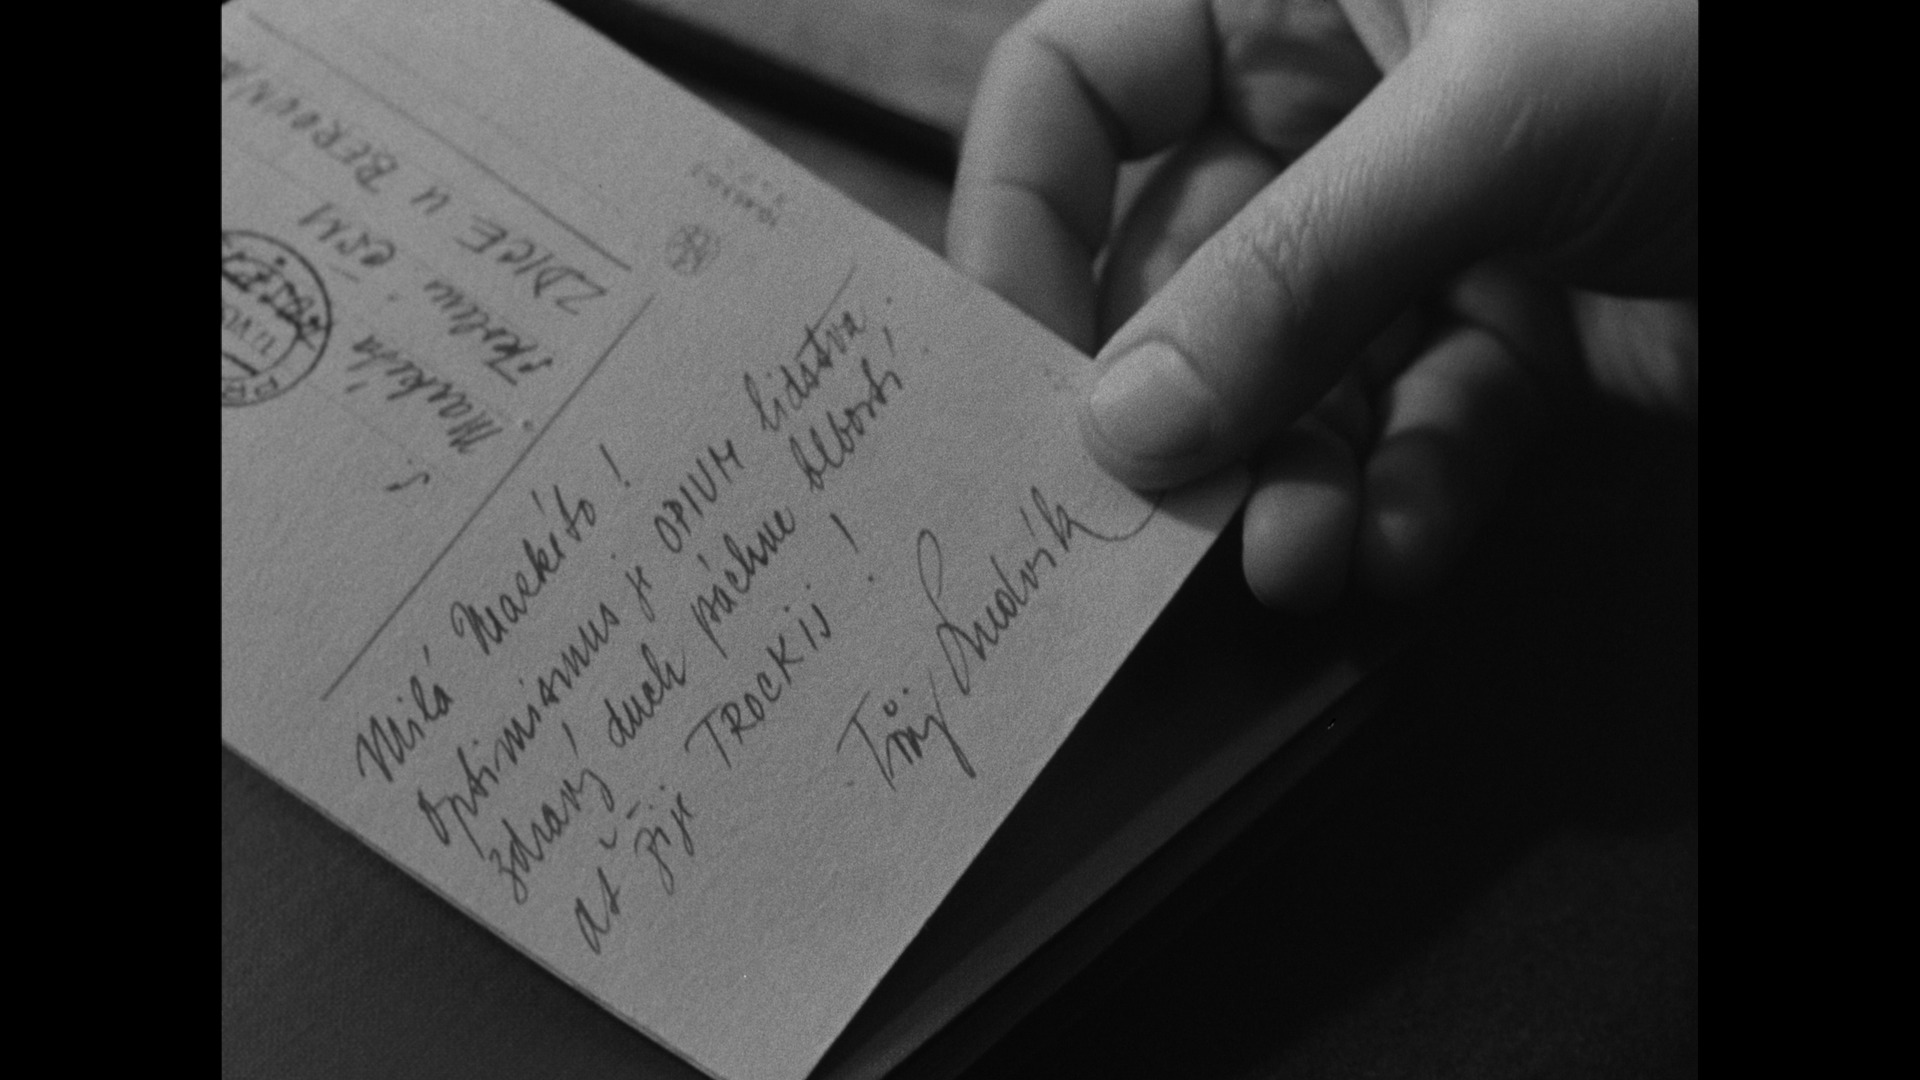 Milá Markéto!
Optimismus je OPIUM lidstva,
zdravý duch páchne blbostí,
ať žije TROCKIJ!
Tvůj Ludvík
S.
Markéta
školení ČSM
ZDICE U BEROUNA